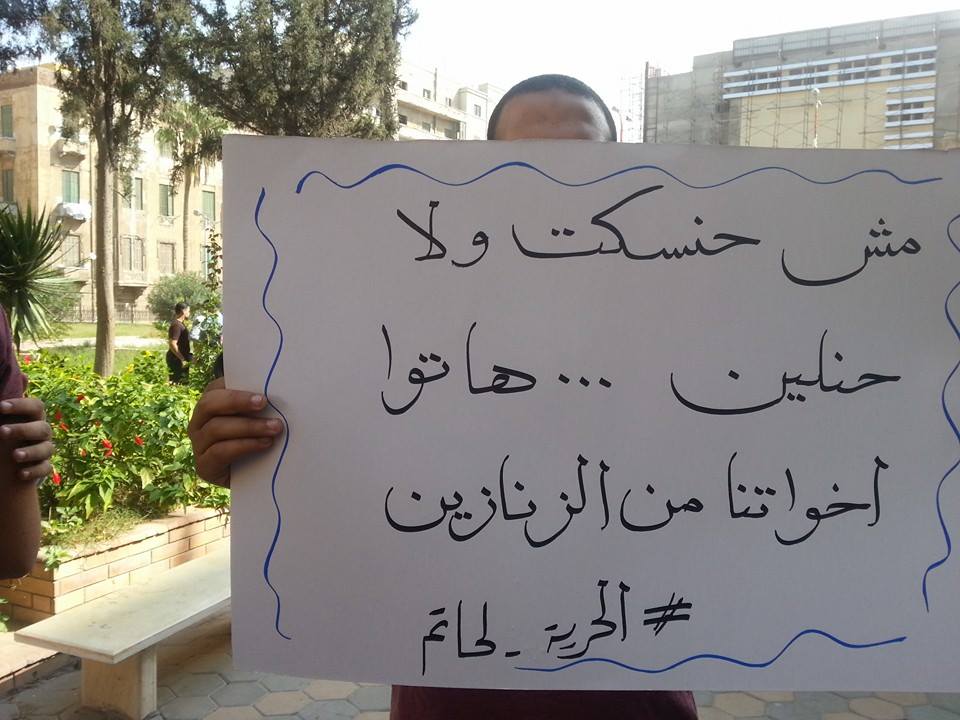 مش حنسكت ولا
حنلين ... هاتوا
اخواتنا من الزنازين
#الحرية_لحاتم